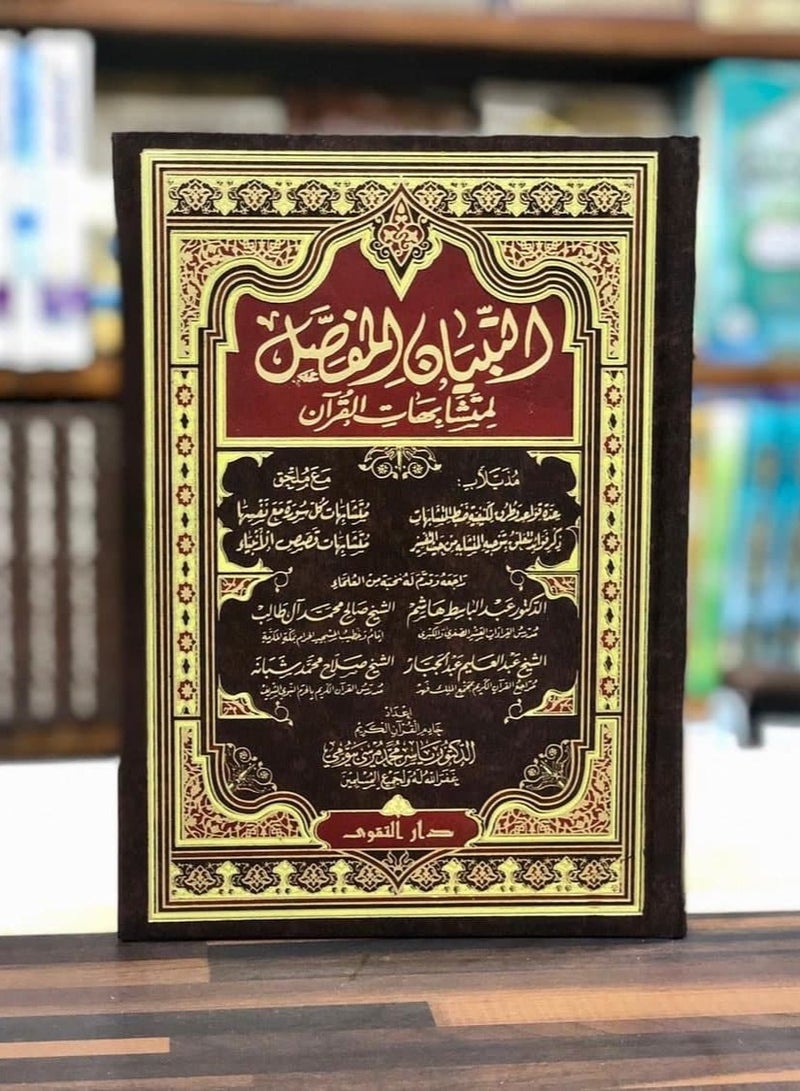 التبيان المفصل
لمتشابهات القرآن
مذيلاب:
مع ملحق
عدة قواعد وطرق لكيفية ضبط المتشابهات
متشابهات كل سورة مع نفسها
ذكر فوائد تتعلق بتوجيه المتشابه من
متشابهات قصص الأنبياء
راجعه وقدم له نخبة من العلماء
الدكتور عبد الباسط هاشم
الشيخ صالح محمد آل طالب
مدرس القراءات العشر الصغرى والكبرى
إمام وخطيب المسجد الحرام بمكة المكرمة
الشيخ عبد العليم عبد الجبار
الشيخ صلاح محمد شبانه
مراجع القرآن الكريم بمجمع الملك فهد
مدرس القرآن الكريم بالحرم النبوي الشريف
إعداد
خادم القرآن الكريم
الدكتور ياسر محمد مرسي بيومي
غفر الله له ولجميع المسلمين
دار التقوى